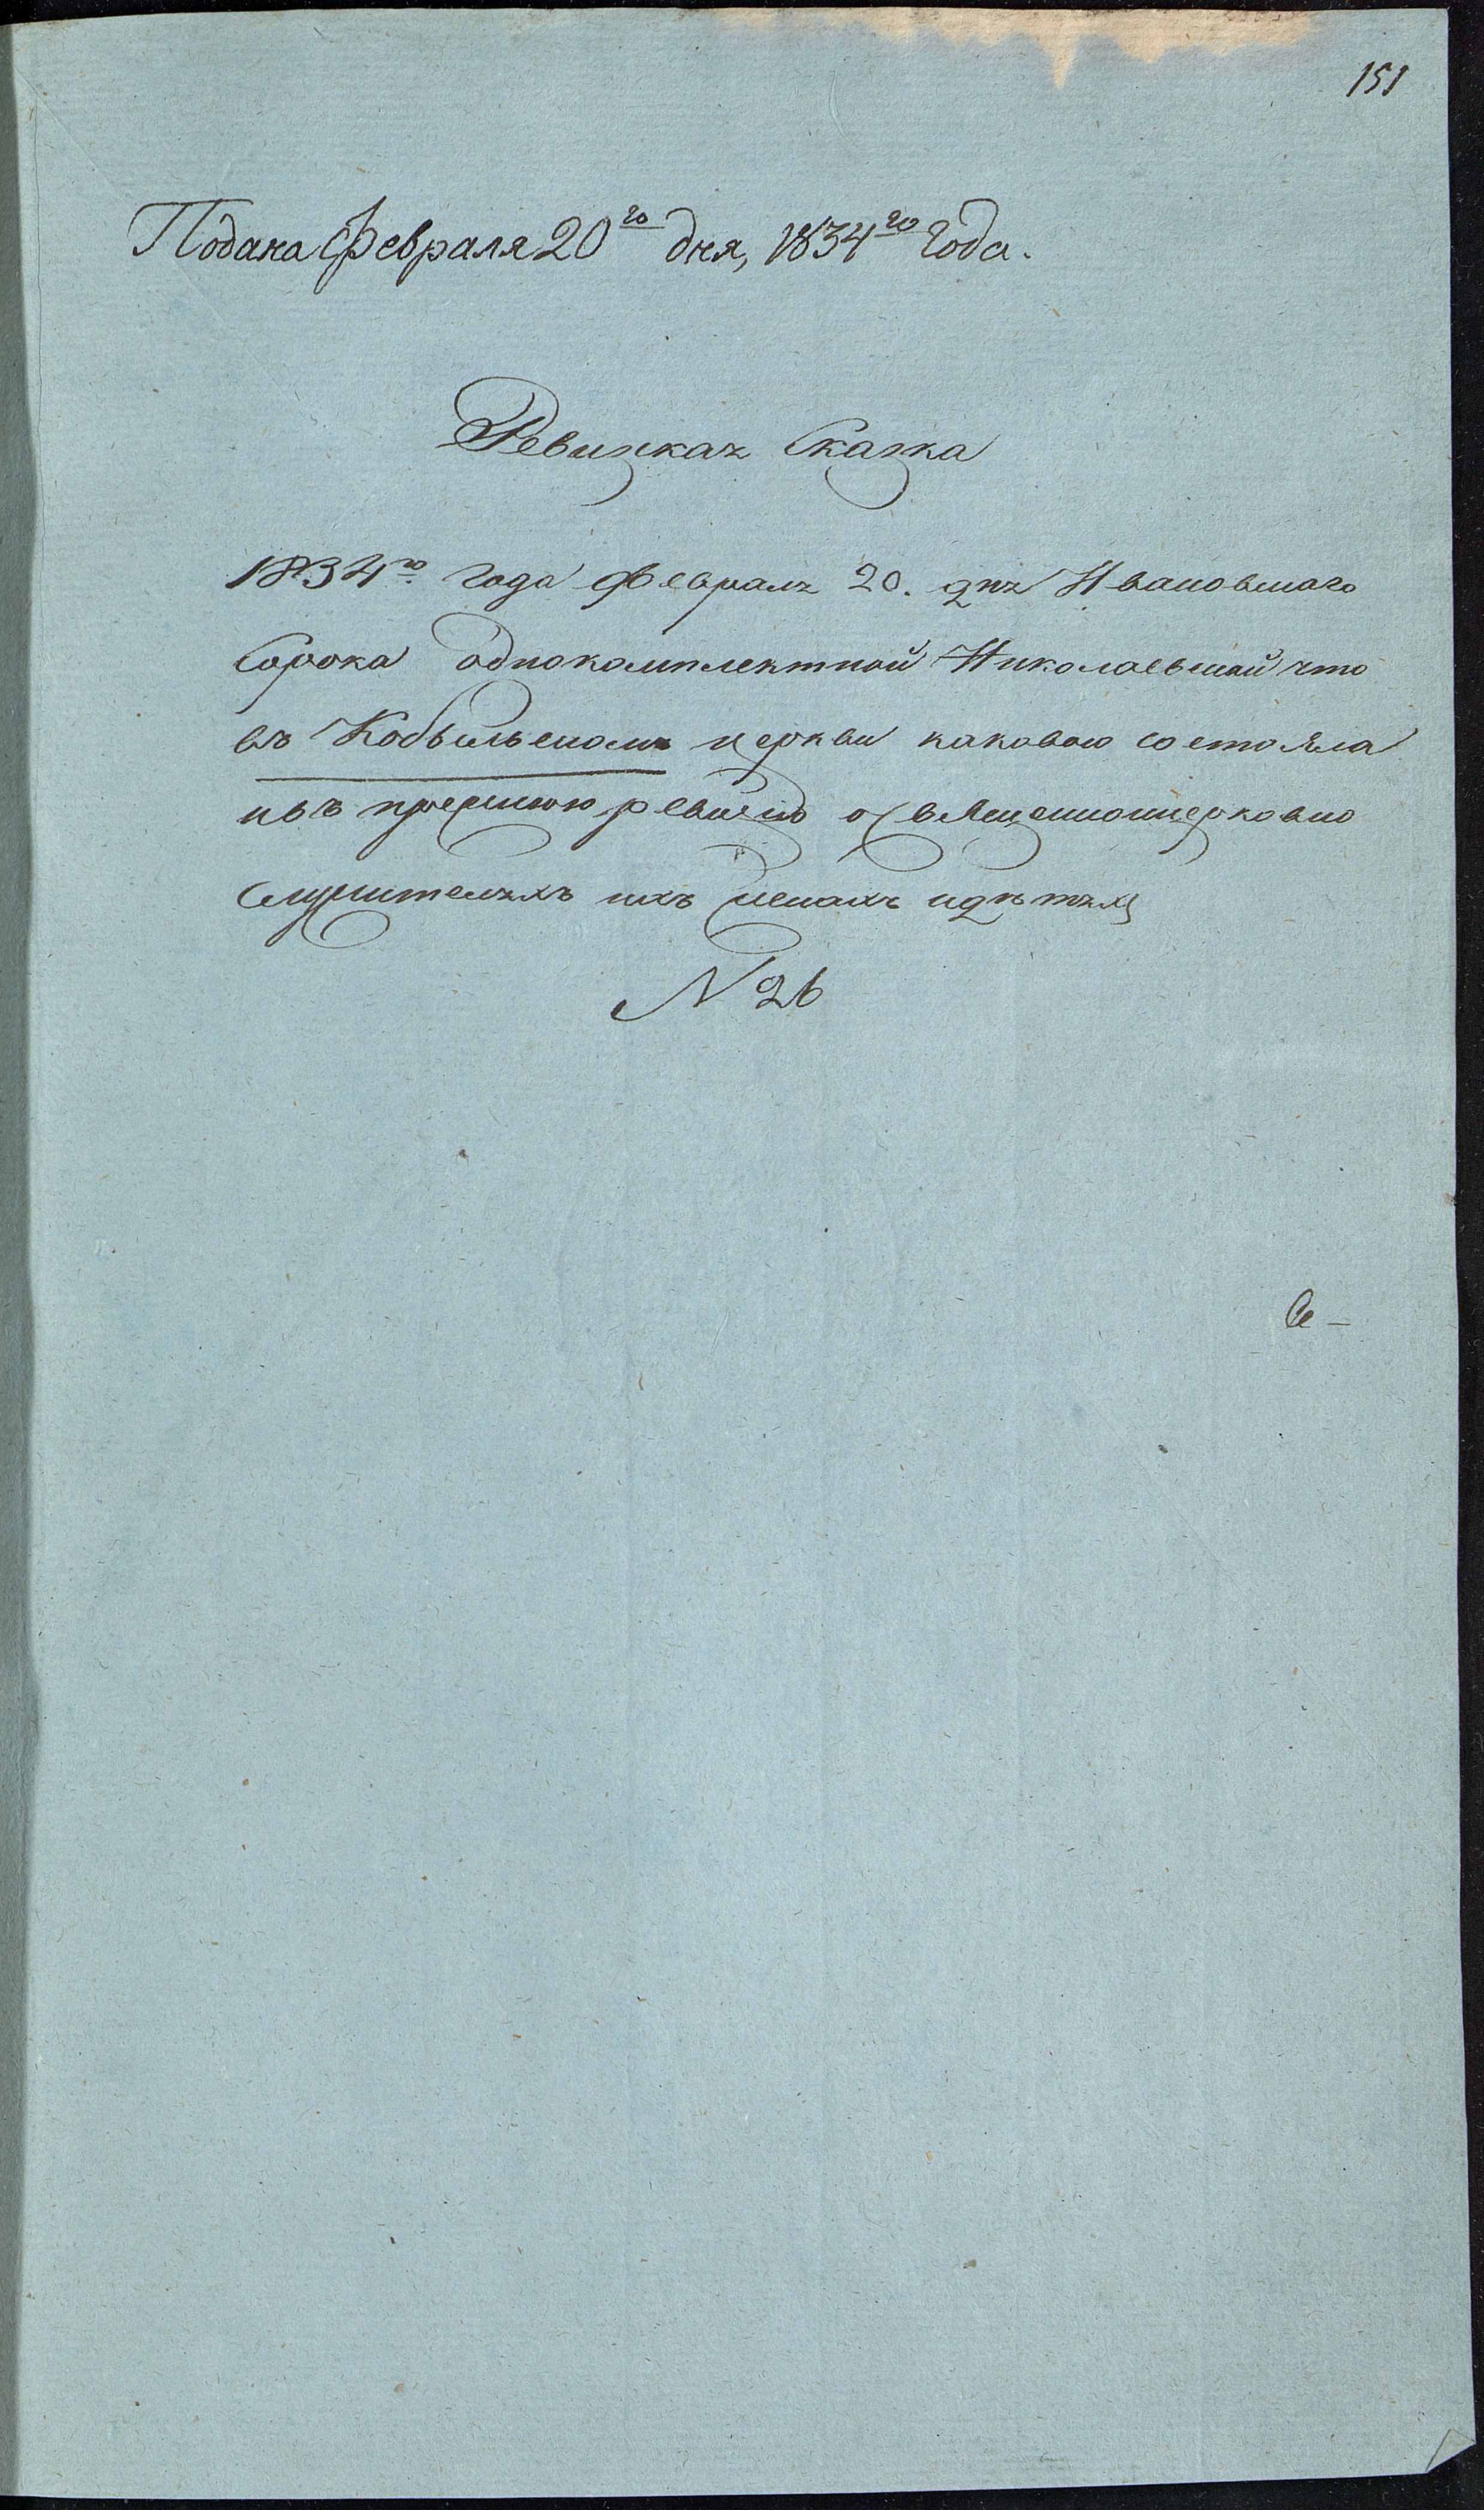 151
Подана Февраля 20го дня, 1834го года.
Ревизкая Сказка
1834го года февраля 20. дня Ивановскаго
Сорока однокомплектной Николаевской что
въ Кобыльскомъ церкви каковою состояла
ивъ прежнюю ревизiю освященноицерковно
служителяхъ ихъ женахъ идѣтяхъ
N 26